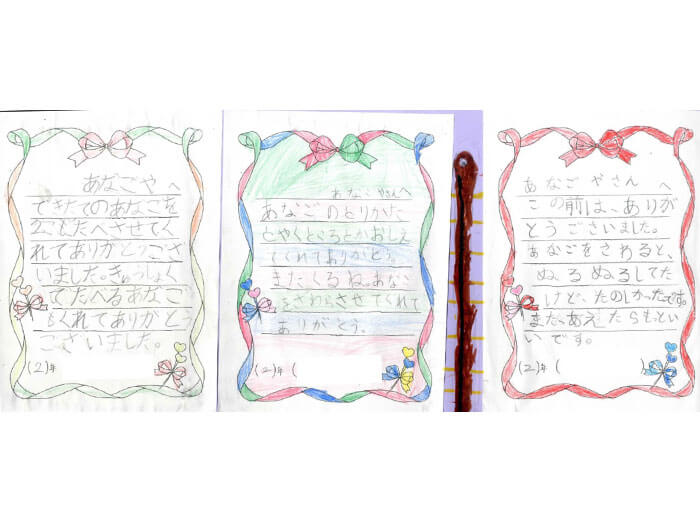 あなごや へ
できたてのあなごを
2ことたべさせてく
れてありがとうござ
いました。きゅうしょく
でたべるあなご
もくれてありがとう
ございました。
(2)年
あなごやさんへ
あなごのとりかた
とやくところとかおしえ
てくれてありがとう。
またくるね。あなご
をさわらさせてくれて
ありがとう。
(2)年 (
あなごやさん へ
この前は、ありが
とうございました。
あなごをさわると、
ぬるぬるしてた
けど、たのしかったです。
また、あえたらもっとい
いです。
(2)年 ( )